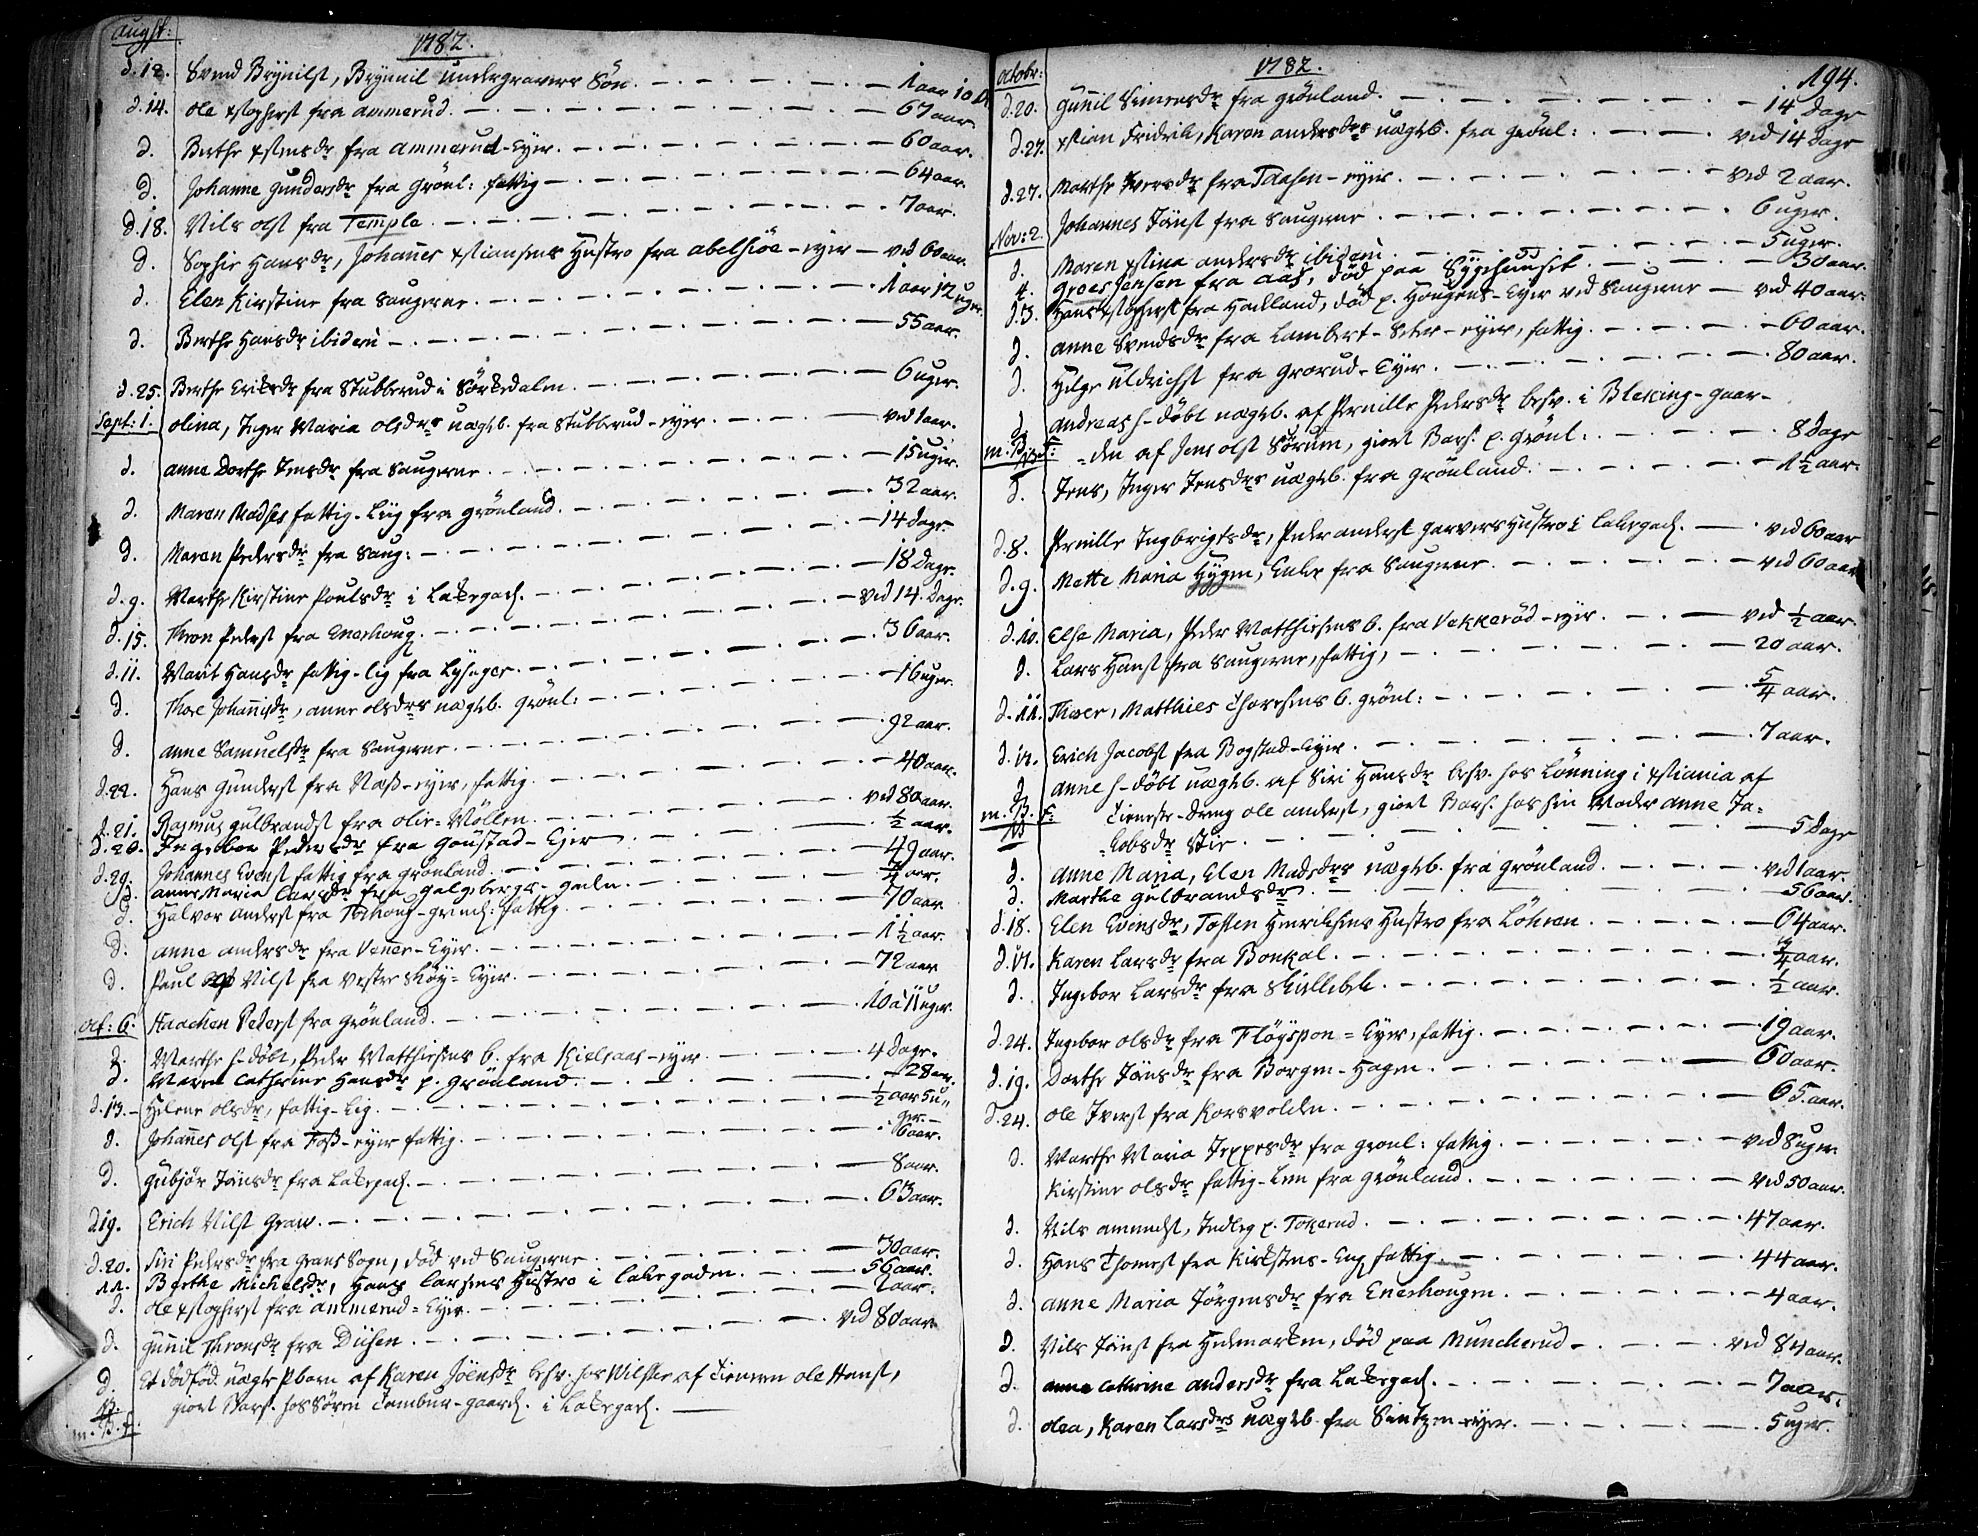 augst:
1782.
d. 12. Svend Brynilss, Brynnil undergravers Søn. 1 aar 10
d. 14. Ole xstophers fra Ammerud. 67 aar.
d. Berthe xstensdr fra Ammerud-Eyer. 60 aar.
d. Johanne Gundersdr fra Grönl: fattig 64 aar.
d. 18. Nils Olss fra Temple. 7 aar.
d. Sophie Hansdr, Johannes xstiansens Hustro fra Abelsiöe-eyer ved 60 aar.
d. Elen Kirstine fra Saugerne. 1 aar 12 uger.
d. Berthe Hansdr ibidem 55 aar.
d. 25. Berthe Eriksdr fra Stubberud i Sörkedalen. 6 uger.
Sept: 1. Olina, Inger Maria Olsdrs uægteb. fra Stubberud-eyer. ved 1 aar.
d. Anne Dorthe Jensdr fra Saugerne. 15 uger.
d. Maren Madses fattig-Liig fra Grönland. 32 aar.
d. Maren Pedersdr fra Saug: 14 dage
d. 9. Marthe Kirstine Poulsdr i Lakegad. 18 Dage.
d. 15. Thron Peders fra Enerhoug. ved 14. Dage.
d. 11. Marit Hansdr fattig-lig fra Lysager. 36 aar.
d. Thore Johannisdr, Anne Olsdrs uægteb. Grönl: 16 uger.
d. Anne Samuelsdr fra Saugerne. 92 aar.
d. 22. Hans Gunders fra Næss-eyer, fattig. 40 aar.
d. 21. Rasmus Gulbrands fra Olie-Möllen. ved 80 aar.
d. 28. Ingebor Pedersdr fra Gaustad-Ejer ½ aar.
d. 29. Johannes Evens fattig fra Grönland. 49 aar.
d. Anne Maria Larsdr fra Galgebergs-
d. Halvor Anders fra fattig. 70 aar
d. Anne Andersdr fra Venner-Eyer. 1½ aar.
d. Paul Nilss fra Vestre Skøy-Eyer. 72 aar
Oct: 6. Haachen Peders fra Grönland. 10 a 11 uger.
d. Marthe h-döbt, Peder Matthiesens b. fra Kielsaas-eyer. 4 Dage.
d. Maren Cathrine Hansdr p. Grönland. 28 aar.
d. 13. Helene Olsdr, fattig-Lig. ½ aar 5 u=
ger.
d. Johannes Olss fra Foss-eyer fattig. 6 aar.
d. Gubjör Jansdr fra Lakegad. 8 aar.
d 19. Erich Nilss Graw. 63 aar.
d. 20. Siri Pedersdr fra Grans Sogn, död ved Saugerne 30 aar.
22. Berthe Michelsdr, Hans Larsens Hustro i Lakegaden. 56 aar.
d. Ole xstophers fra Ammerud-Eyer. 2 aar.
d. Gunnil Thronsdr fra Diisen. ved 80 aar
d. Et dödföd uægte Pbarn af Karen Jöensdr besv. hos Wilster af Tieneren Ole Hanss,
m. B. f. giort Bars. hos Sören Tambur-gaard. i Lakegad.
194.
1782.
octobr:
d. 20. Gunnil Simensdr fra Grönland. 14 Dage
d. 27. xstian Fridrik, Karen Andersdrs uægteb. fra Grönl: ved 14 Dage
d. 27. Marthe Iversdr fra Taasen-eyer. ved 2 aar.
Nov: 2. Johannes Jans fra Saugerne. 6 uger.
d. Maren xstina Andersdr ibidem. 5 uger.
4. Groes Jensen fra Aas, død paa Sygehuuset 30 aar.
d. 3. Hans xstophers fra Hadland, död p. Hougens-Eyer ved Saugerne ved 40 aar:
d. Anne Svendsdr fra Lambert-Seter-eyer, fattig. 60 aar.
d. Helge Uldrichs fra Grorud-Eyer. 80 aar.
d. Andreas h-döbt uægteb. af Pernille Pedersdr besv. i Bleking-gaar-
m. B. F: =den af Jens Olss Sörum, giort Bars. p. Grönl: 8 Dage
d. Jens, Inger Jensdrs uægteb. fra Grönland. 1½ aar.
d. 8. Pernille Ingbrigtsdr, Peder Anders Garvers Hustro i Lakegad. ved 60 aar
d. 9. Mette Maria Hygen, Enke fra Saugerne. ved 60 aar
d. 10. Else Maria, Peder Matthiesens b. fra Vekkeröd-eyer. ved ½ aar.
d. Lars Hanss fra Saugerne, fattig, 20 aar.
d. 11. Thoer, Matthies Thoresens b. Grönl: 5/4 aar.
d. 17. Erich Jacobs fra Bogstad-Eyer. 7 aar.
d. Anne h-döbt uægteb. af Siri Hansdr besv. hos Lönning i xstiania af
m. B. F: Tieneste-Dreng Ole Anders, giort Bars. hos sin Moder Anne Ja=
=cobsdr Stie. 5 Dage
d. Anne Maria, Elen Madsdrs uægteb. fra Grönland. ved 1 aar.
d. Marthe Gulbrandsdr. 56 aar.
d. 18. Elen Evensdr, Tosten Henriksens Hustro fra Löhren. 64 aar.
d. 17. Karen Larsdr fra Bonkal. aar.
d. Ingebor Larsdr fra Skillebek. ½ aar.
d. 24. Ingebor Olsdr fra Flöyspon=Eyer, fattig. 19 aar.
d. 19. Dorthe Jansdr fra Borgen-Hagen. 60 aar.
d. 24. Ole Ivers fra Korsvolden. 65 aar.
d. Marthe Maria Jeppesdr fra Grönl: fattig. ved 8 uger
Kirstine Olsdr fattig-Lem fra Grönland. ved 50 aar.
d. Nils Amunds, Indleg p. Tokerud. 47 aar.
d. Hans Thomess fra Kirkstens-Eng fattig 44 aar.
d. Anne Maria Jörgensdr fra Enerhougen. 4 aar.
d. Nils Jans fra Hedemarken, död paa Muncherud. ved 84 aar.
d. Anne Cathrine Andersdr fra Lakegad. 7 aar.
d. Olea, Karen Larsdrs uægteb. fra Sintzen-eyer. 5 uger.